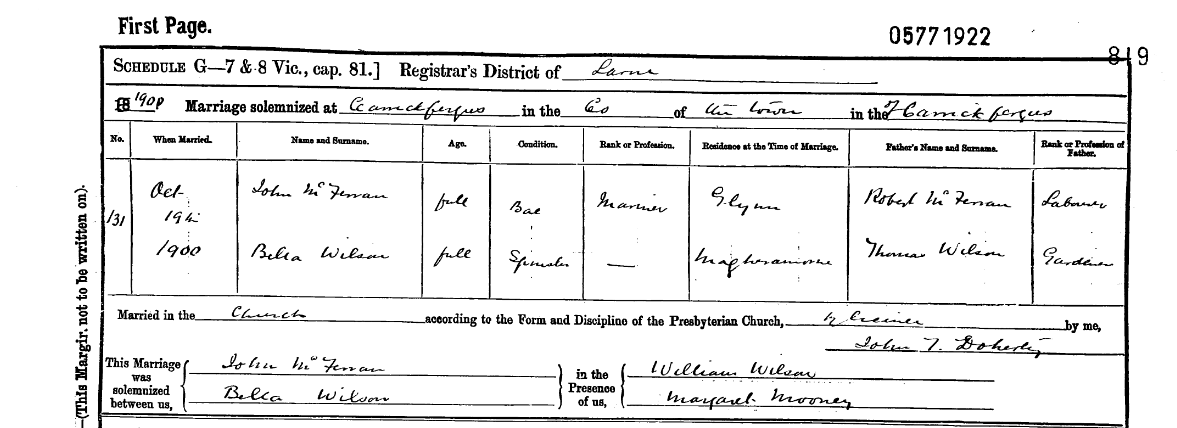 First Page.
05771922
819
SCHEDULE G—7 & 8 Vic., cap. 81.] Registrar's District of Larne
1900 Marriage solemnized at Carrickfergus in the Co of the town in the Carrickfergus
No. When Married. Name and Surname. Age. Condition. Rank or Profession. Residence at the Time of Marriage. Father's Name and Surname. Rank or Profession of Father.
131 Oct 19th 1900 John McFerran full Bac Mariner Glynn Robert McFerran Labourer
Bella Wilson full Spinster — Magheramorne Thomas Wilson Gardiner
Married in the Church according to the Form and Discipline of the Presbyterian Church, by license by me,
John T. Doherty
This Marriage was solemnized between us, John McFerran
Bella Wilson
in the Presence of us, William Wilson
Margaret Mooney
—(This Margin not to be written on).